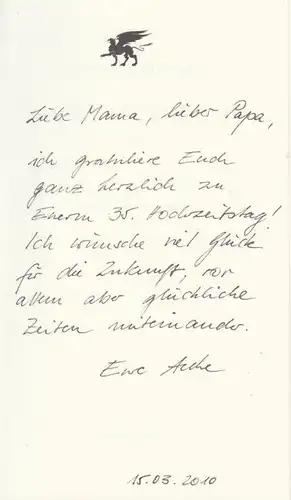 Liebe Mama, lieber Papa,
ich gratuliere Euch
ganz herzlich zu
Euerm 35. Hochzeitstag!
Ich wünsche viel Glück
für die Zukunft, vor
allem aber glückliche
Zeiten miteinander.
15.03.2010